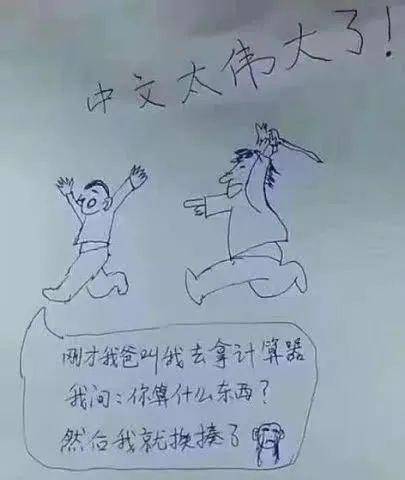 中文太伟大了!
刚才我爸叫我去拿计算器
我问:你算什么东西?
然后我就挨揍了